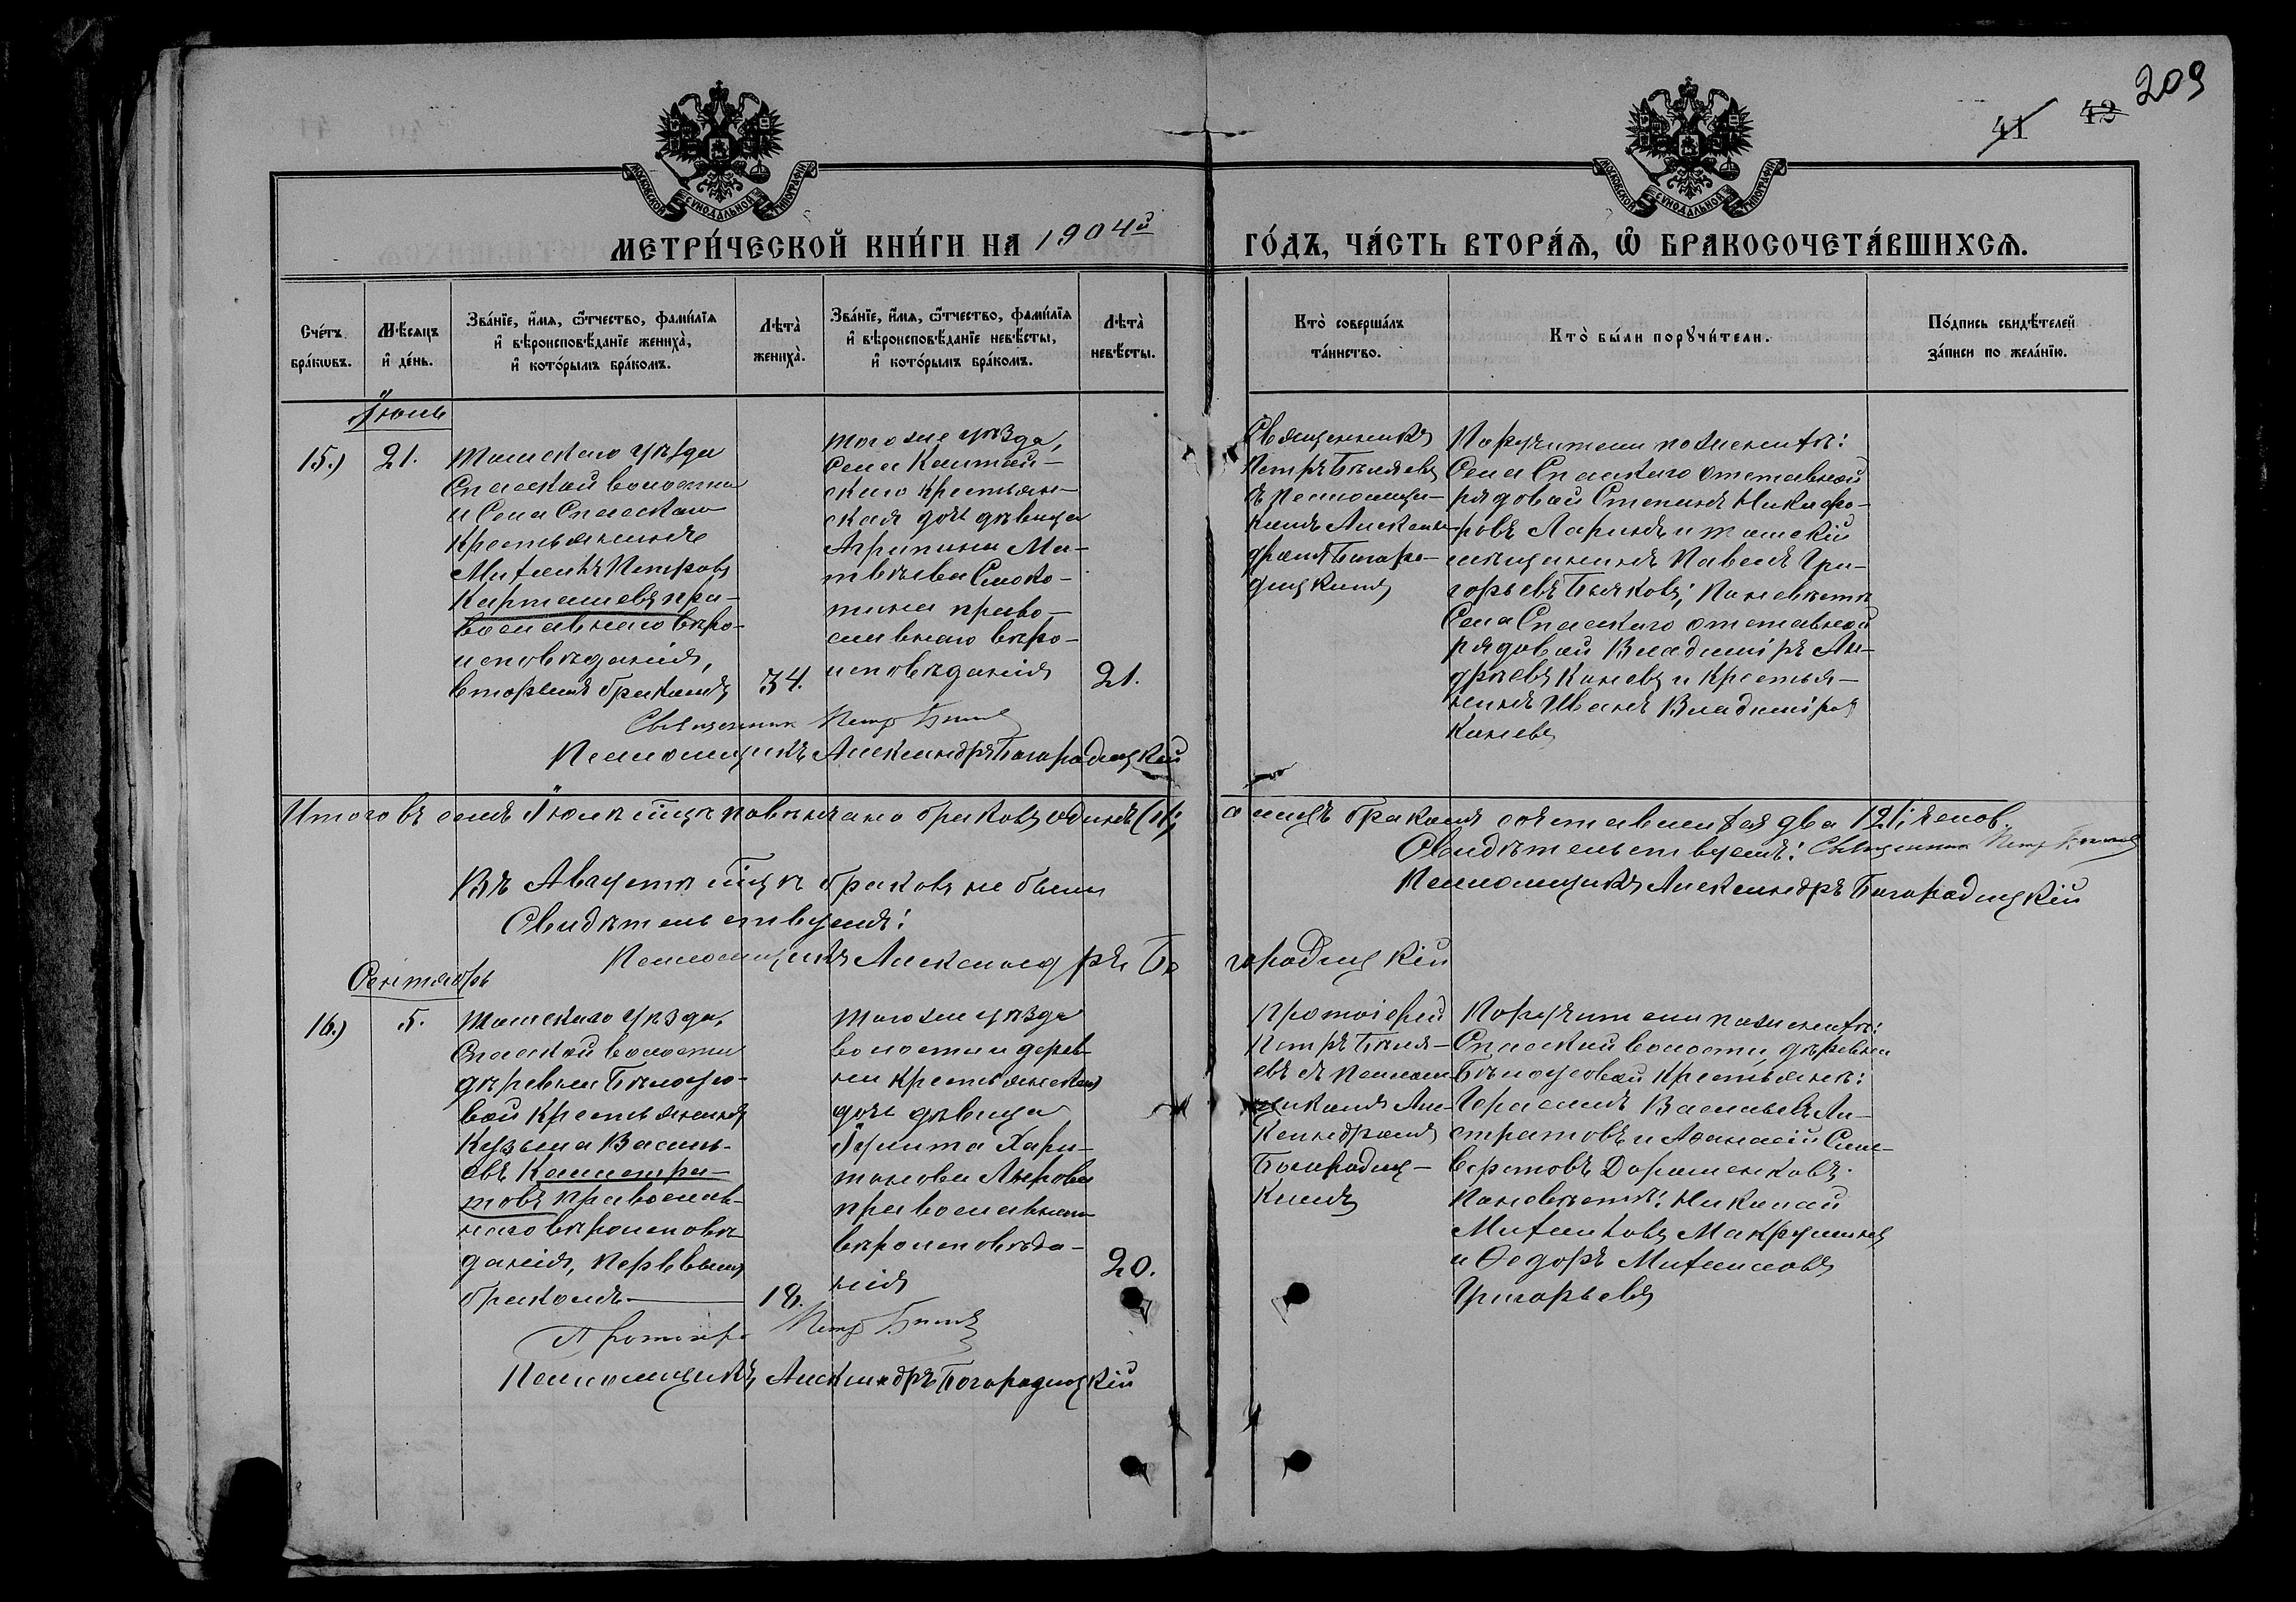 209
41 42
МОСКОВСКОЙ СѴНОДАЛЬНОЙ ТИПОГРАФІИ
МОСКОВСКОЙ СѴНОДАЛЬНОЙ ТИПОГРАФІИ
МЕТРИ́ЧЕСКОЙ КНИ́ГИ НА 1904й ГО́ДЪ, ЧА́СТЬ ВТОРА́Ѧ, Ѽ БРАКОСОЧЕТА́ВШИХСѦ.
Сче́тъ
бра́кѡвъ.
Мѣ́сѧцъ
и҆ де́нь.
Зва́нїе, и҆́мѧ, ѻ҆́тчество, фами́лїѧ
и҆ вѣроисповѣ́данїе жениха̀,
и҆ кото́рымъ бра́комъ.
Лѣта̀
жениха̀.
Зва́нїе, и҆́мѧ, ѻ҆́тчество, фами́лїѧ
и҆ вѣроисповѣ́данїе невѣ́сты,
и҆ кото́рымъ бра́комъ.
Лѣта̀
невѣ́сты.
Кто̀ соверша́лъ
та́инство.
Кто̀ бы́ли порꙋчи́тели.
По́дпись свидѣ́телей
за́писи по жела́нїю.
Іюль
15.)
21.
Томскаго уѣзда
Спасской волости
и Села Спасскаго
крестьянинъ
Михаилъ Петровъ
Карташевъ пра-
вославнаго веро-
исповѣданія,
вторымъ бракомъ
34.
того же уѣзда,
села
скаго крестьян-
ская дочь дѣвица
Агрипина Ма-
твѣева
право-
славнаго веро-
исповѣданія
21.
Священникъ
Петръ Бѣляевъ
съ псаломщи-
комъ Алексан-
дромъ Богоро-
дицкимъ
Поручители по женихѣ:
Села Спасскаго отставной
рядовой Степанъ Никифо-
ровъ Ларинъ и томскій
мѣщанинъ Павелъ Гри-
горьевъ по невѣстѣ
Села Спасскаго отставной
рядовой Владиміръ Ан-
дреевъ Каневъ и крестья-
нинъ Иванъ Владиміровъ
Каневъ
Священник Петр
Псаломщикъ Александръ Богородицкій
Итого въ семъ Іюлѣ мцѣ повѣнчано браковъ одинъ (1); а лицъ бракомъ сочетавшихся два /2/ челов.
Свидѣтельствуемъ: Священник Петр
Псаломщикъ Александръ Богородицкій
Въ Августѣ мцѣ браковъ не было
Свидѣтельствуемъ:
Псаломщикъ Александръ Богородицкій
Сентябрь
16.)
5.
Томскаго уѣзда,
Спасской волости
деревни Бѣлоусо-
вой крестьянинъ
Кузьма Василь-
евъ
товъ православ-
наго вероисповѣ-
данія, первымъ
бракомъ
18.
того же уѣзда
волости и дерев-
ни крестьянская
дочь дѣвица
Іулита Хари-
тонова
православнаго
вероисповѣда-
нія
20.
Протоіерей
Петръ Бѣля-
евъ съ псалом-
щикомъ Але-
ксандромъ
Богородиц-
кимъ
Поручители по женихѣ:
Спасской волости, деревни
Бѣлоусовой крестьяне:
Герасимъ Васильевъ
и Афанасій
Дорошенковъ.
По невѣстѣ: Николай
Михайловъ
и Федоръ Михайловъ
Григорьевъ
Протоіерей Петр
Псаломщикъ Александръ Богородицкій